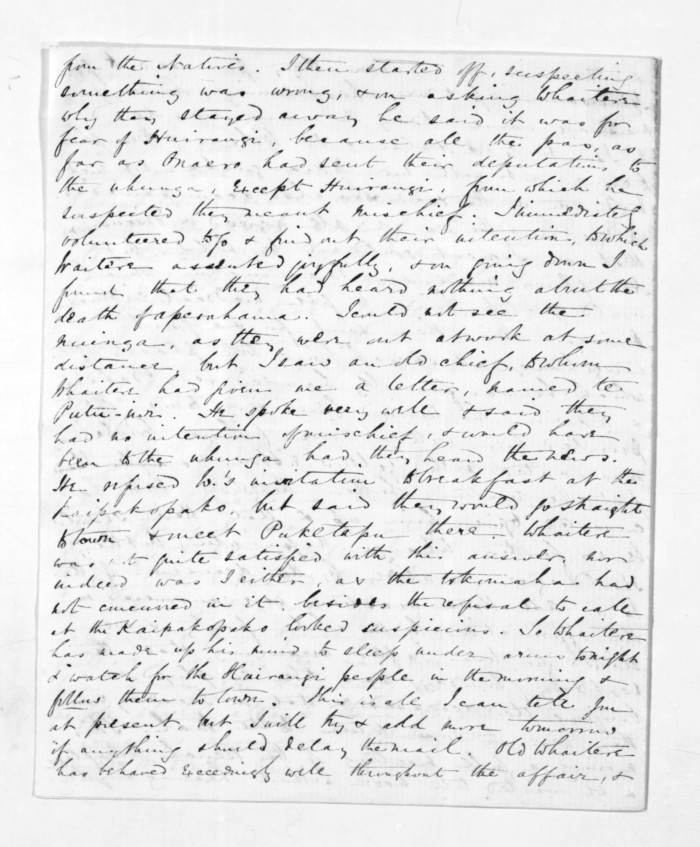 from the Natives. I then started off, suspecting
something was wrong, & on asking Whaitere
why they stayed away he said it was for
fear of Huirangi, because all the pas, as
far as Maero had sent their deputations to
the uhunga, except Huirangi, from which he
suspected they meant mischief. I immediately
volunteered to go & find out their intention, to which
Waitere assented joyfully, & on going down I
found that they had heard nothing about the
death of aperahama. I could not see the
runinga, as they were out at work at some
distance, but I saw an old chief, to whom
Whaitere had given me a letter, named te
He spoke very well & said they
had no intention of mischief, & would have
been to the uhunga had they heard the news.
He refused W.'s invitation to breakfast at the
Kaipakopako, but said they would go straight
to town & meet Puketapu there. Whaitere
was not quite satisfied with this answer, nor
indeed was I either, as the had
not concurred in it, besides the refusal to call
at the Kaipakopako looked suspicious. So Whaitere
has made up his mind to sleep under arms tonight
& watch for the Huirangi people in the morning &
follow them to town. This is all I can tell you
at present, but I will try & add more tomorrow
if anything should delay the mail. Old Whaitere
has behaved exceedingly well throughout the affair, &